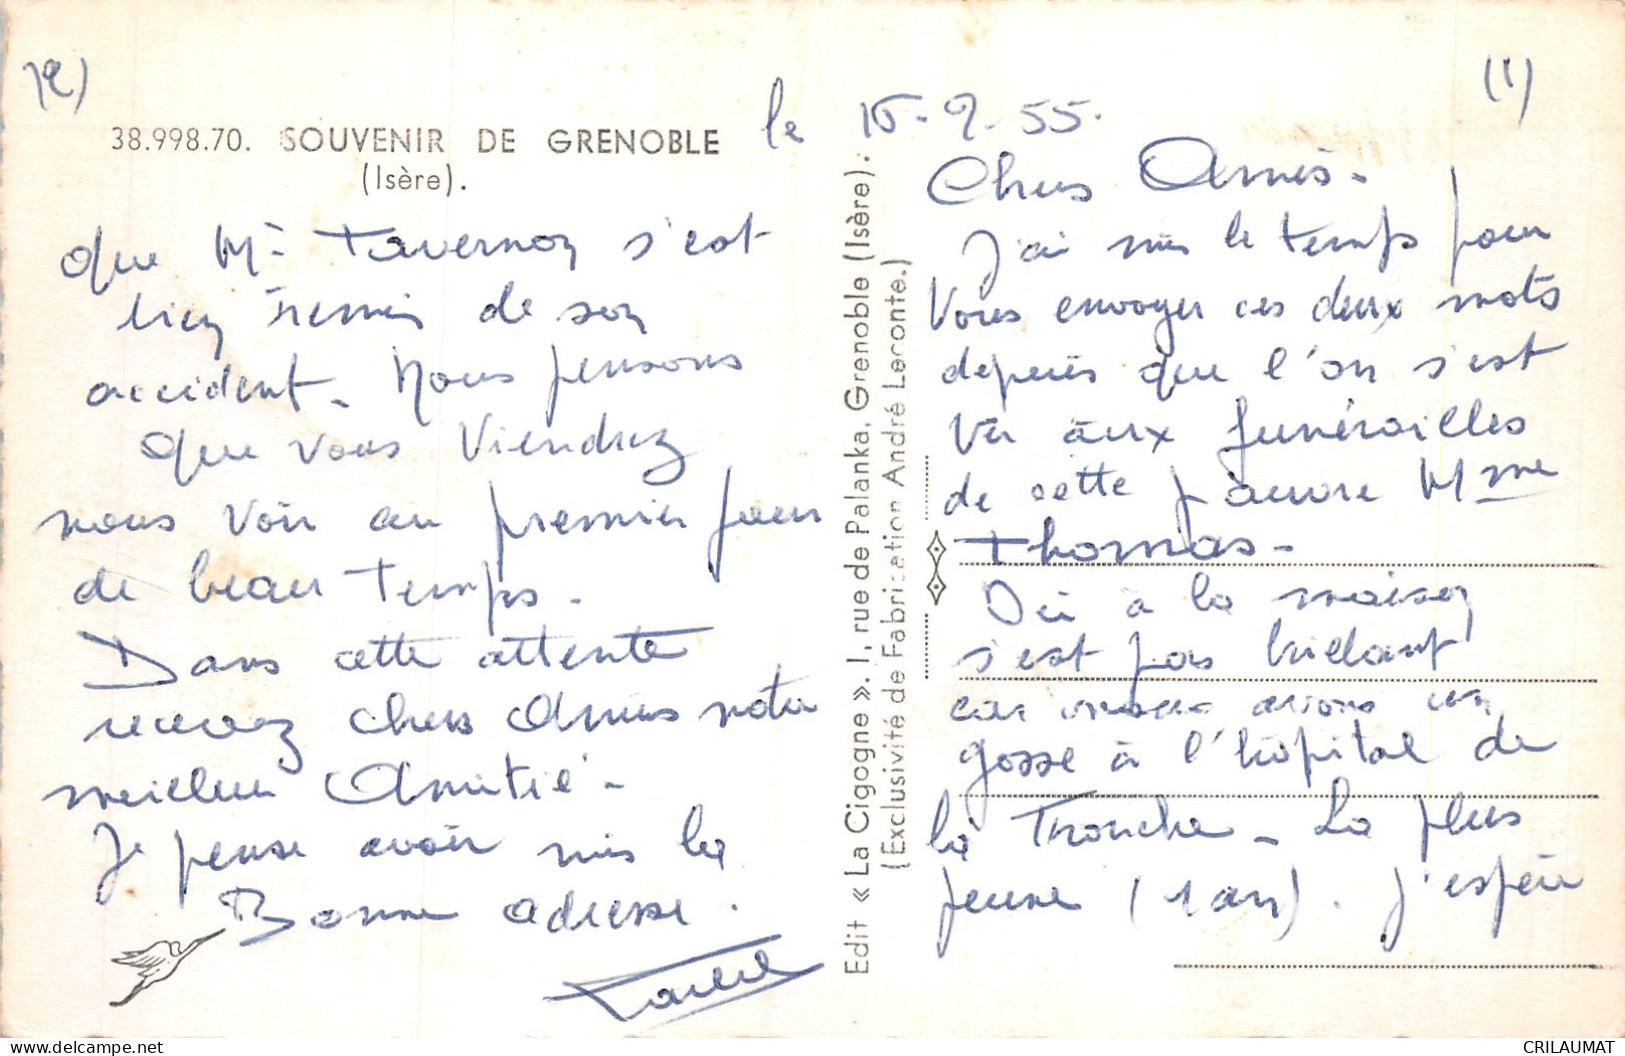 (2)
38.998.70. SOUVENIR DE GRENOBLE
(Isère).
le 16-9-55.
(1)
Chers Amis-
J'ai mis le temps pour
Vous envoyer ces deux mots
depuis que l'on s'est
Vu aux funérailles
de cette pauvre Mme
Thomas-
Ici à la maison
s'est pas brillant
car nous avons un
gosse à l'hôpital de
la Tronche - La plus
jeune (1 an). J'espère
que Mr Tavernon s'est
bien remis de son
accident. Nous pensons
que vous viendrez
nous voir au premier jour
de beau temps.
Dans cette attente
recevez chers Amis notre
meilleur Amitié-
Je pense avoir mis la
Bonne adresse.
Edit « La Cigogne ». 1, rue de Palanka, Grenoble (Isère).
(Exclusivité de Fabrication André Leconte.)
CRILAUMAT